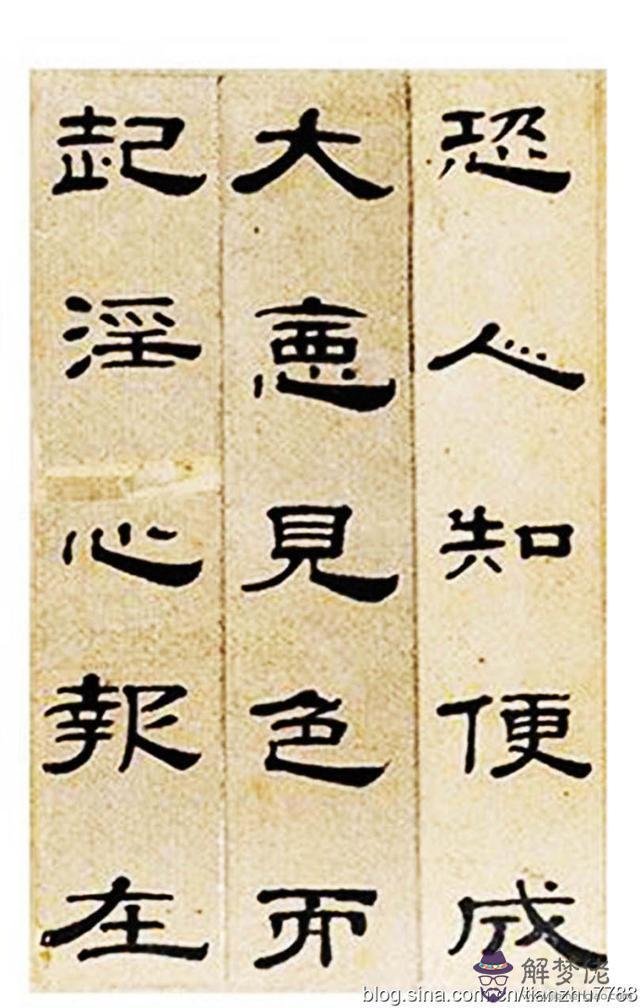 恐人知便成
大惡見色而
起淫心報在
解梦佬
blog.sina.com.cn/tianzhu7788